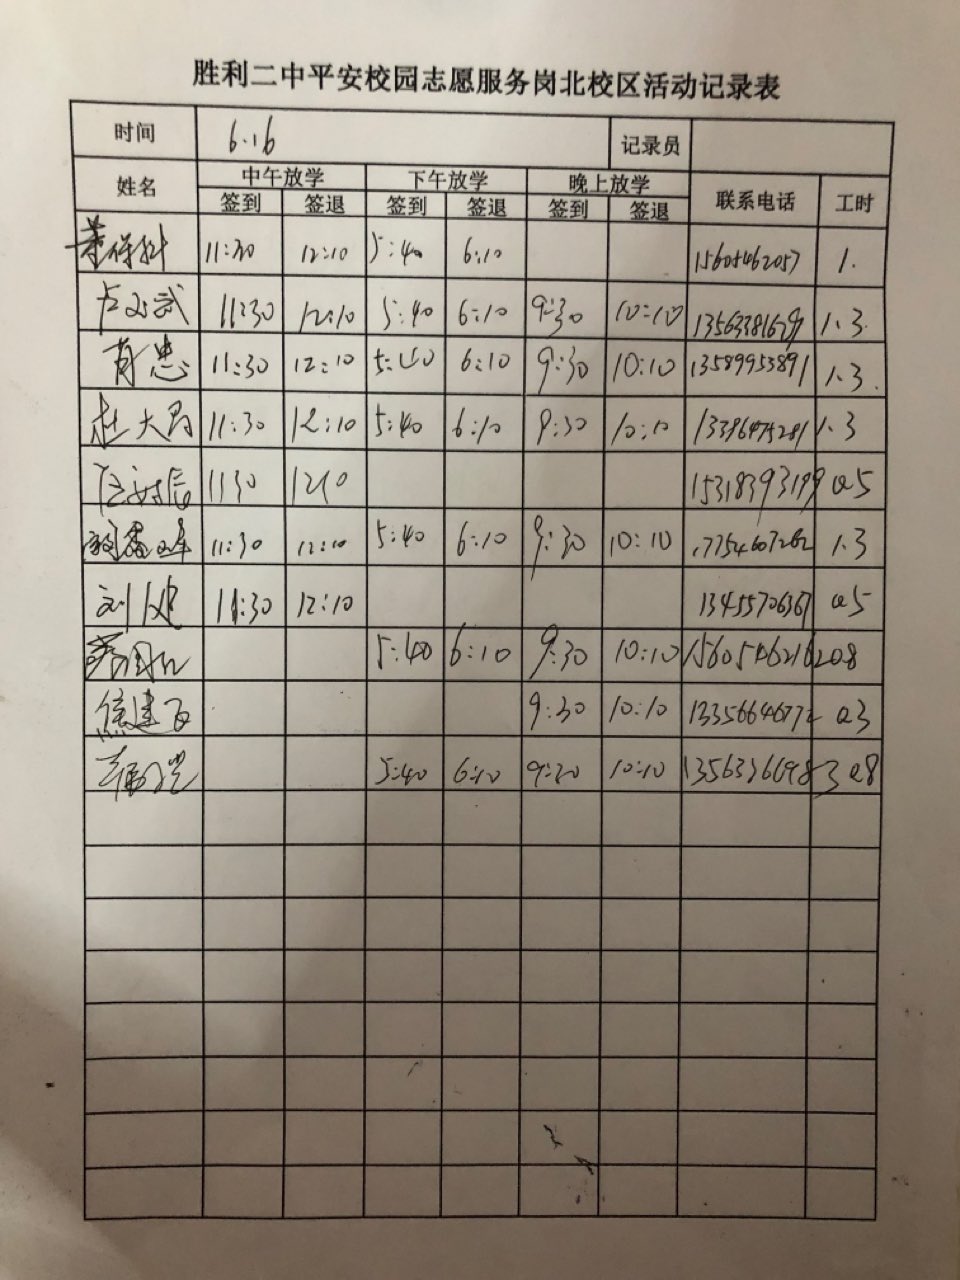 胜利二中平安校园志愿服务岗北校区活动记录表
时间 6.16 记录员
姓名 中午放学 下午放学 晚上放学 联系电话 工时
签到 签退 签到 签退 签到 签退
11:30 12:10 5:40 6:10 15605462057 1.
11:30 12:10 5:40 6:10 9:30 10:10 1.3.
肖忠 11:30 12:10 5:40 6:10 9:30 10:10 13589953891 1.3.
杜大局 11:30 12:10 5:40 6:10 9:30 10:10 13396475281 1.3
1130 1210 15318393199 0.5
11:30 12:10 5:40 6:10 9:30 10:10 17754607262 1.3
刘 11:30 12:10 13455706367 0.5
5:40 6:10 9:30 10:10 15605462162 0.8
焦建 9:30 10:10 13356646772 0.3
5:40 6:10 9:30 10:10 13563366983 0.8